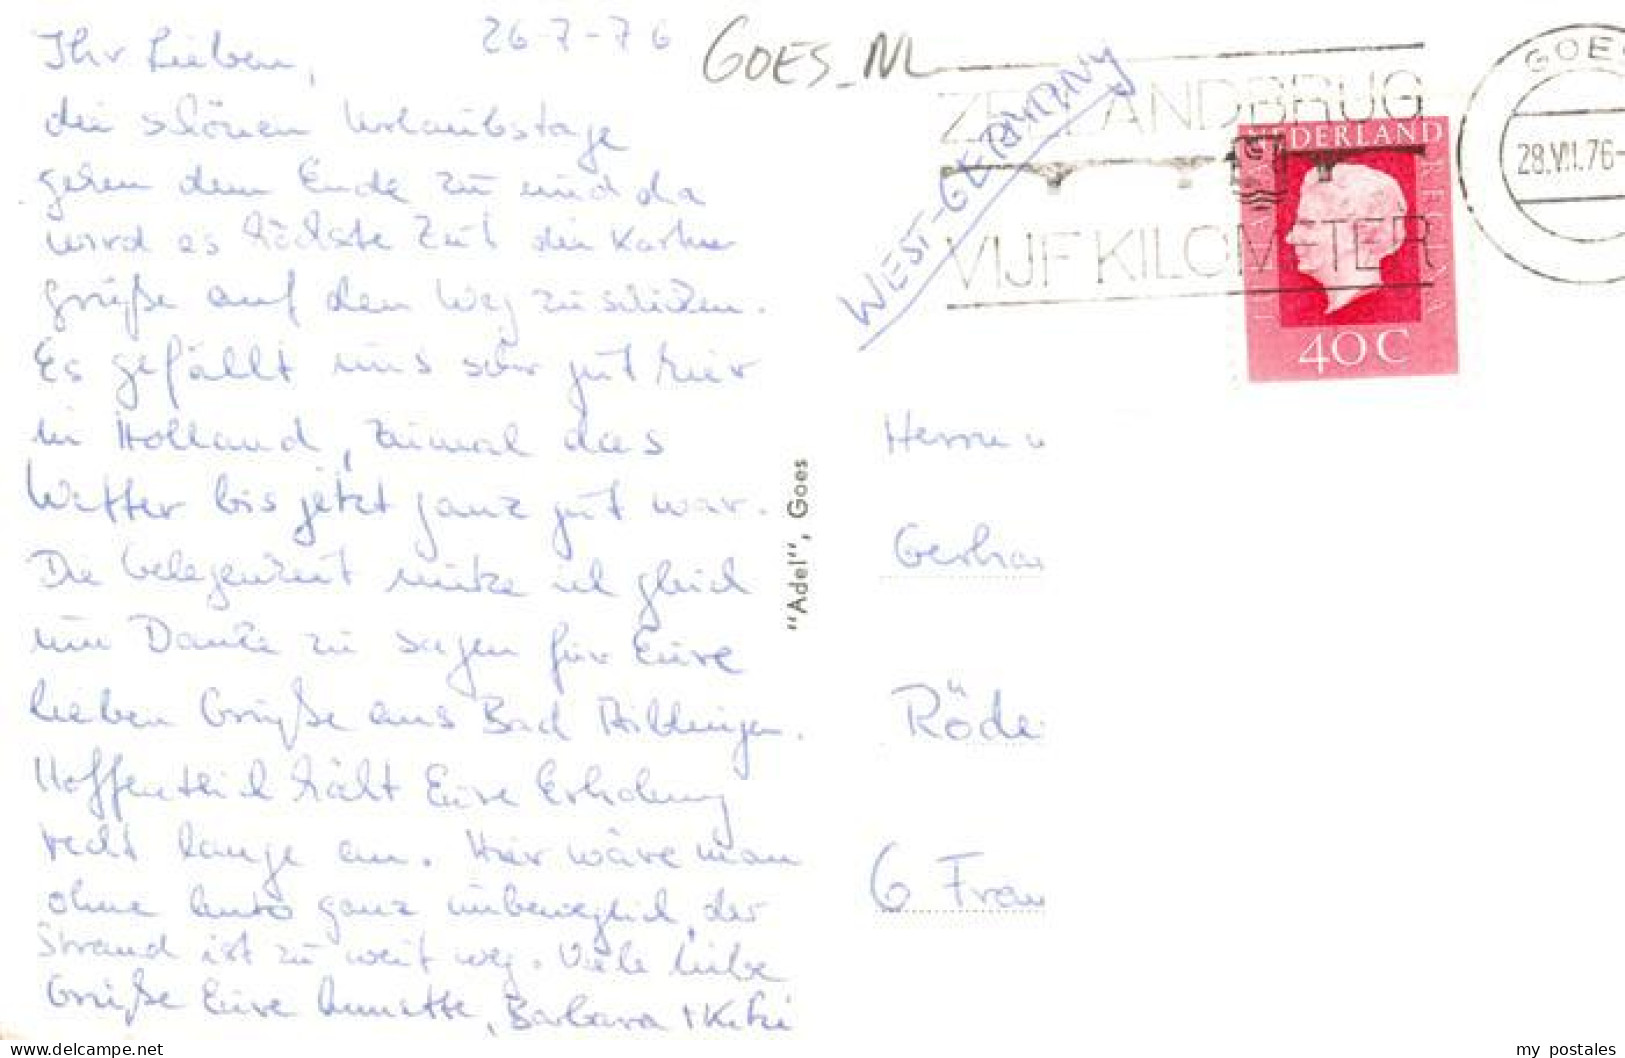 26-7-76
Ihr Lieben,
die schönen Urlaubstage
gehen dem Ende zu und da
wird es höchste Zeit die Karten
grüße auf den Weg zu schicken.
Es gefällt uns sehr gut hier
in Holland, zumal das
Wetter bis jetzt ganz gut war.
Die Gelegenheit nütze ich gleich
um Danke zu sagen für Eure
lieben Grüße aus Bad Aiblingen.
Hoffentlich hält Eure Erholung
recht lange an. Hier wäre man
ohne Auto ganz unbeweglich, der
Strand ist zu weit weg. Viele liebe
Grüße Eure Annette, Barbara + Kiki
GOES_NL
ZEELANDBRUG
VIJF KILOMETER
GOES
28.VII.76-
NEDERLAND
JULIANA REGINA
40C
WEST-GERMANY
"Adel", Goes
Herrn u
Gerha
Röde
6 Fran
my_postales